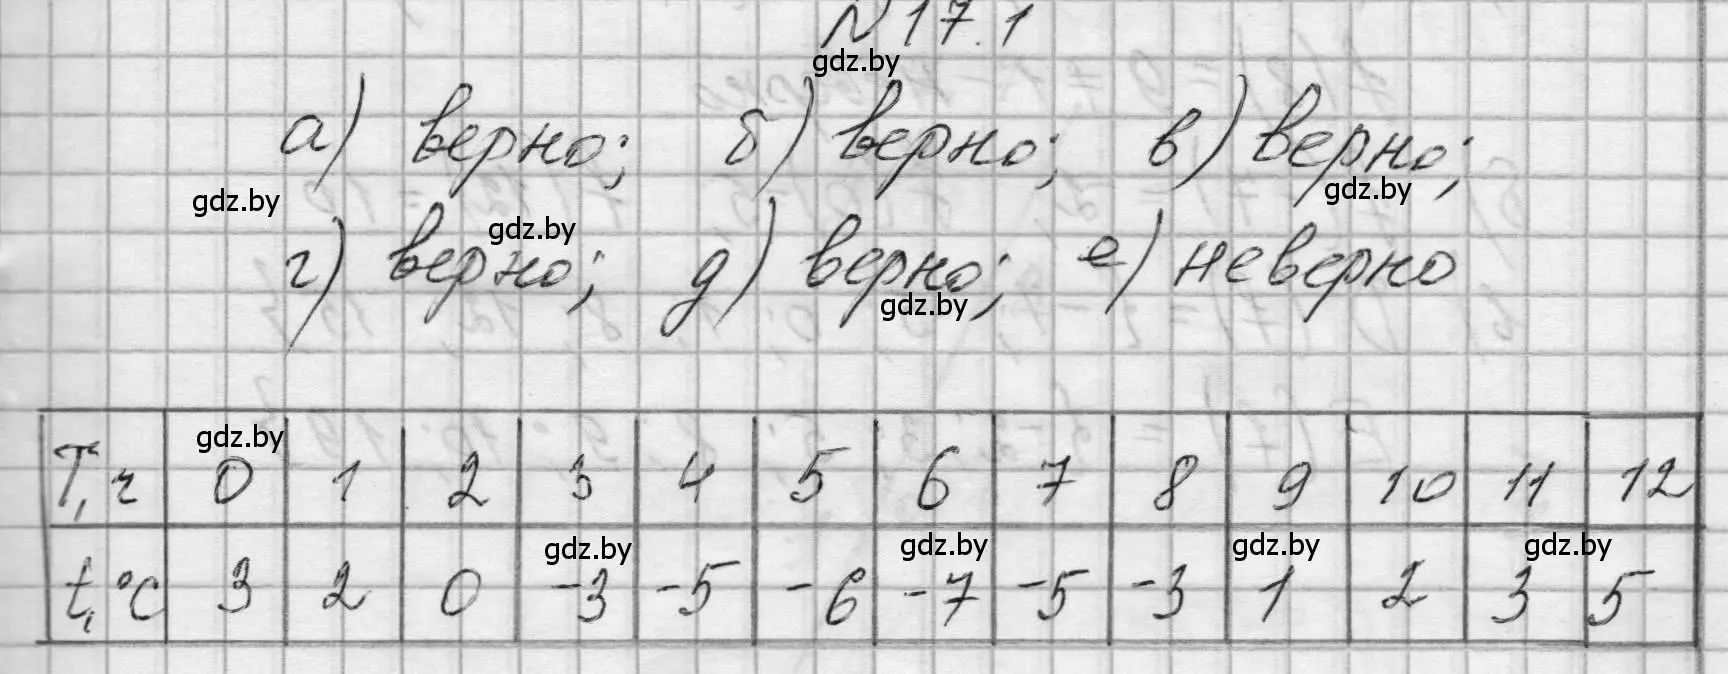 N 17.1
gdz.by
а) верно; б) верно; в) верно;
gdz.by gdz.by
г) верно; gdz.by д) верно; е) неверно
gdz.by
gdz.by
T, ч 0 1 2 3 4 5 6 7 8 9 10 11 12
gdz.by gdz.by gdz.by gdz.by
t, °C 3 2 0 -3 -5 -6 -7 -5 -3 1 2 3 5